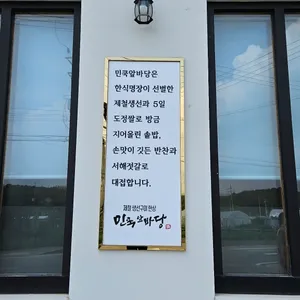 민쿡앞바당은
한식명장이 선별한
제철생선과 5일
도정쌀로 방금
지어올린 솥밥,
손맛이 깃든 반찬과
서해젓갈로
대접합니다.
제철 생선구이 한상
민쿡앞바당